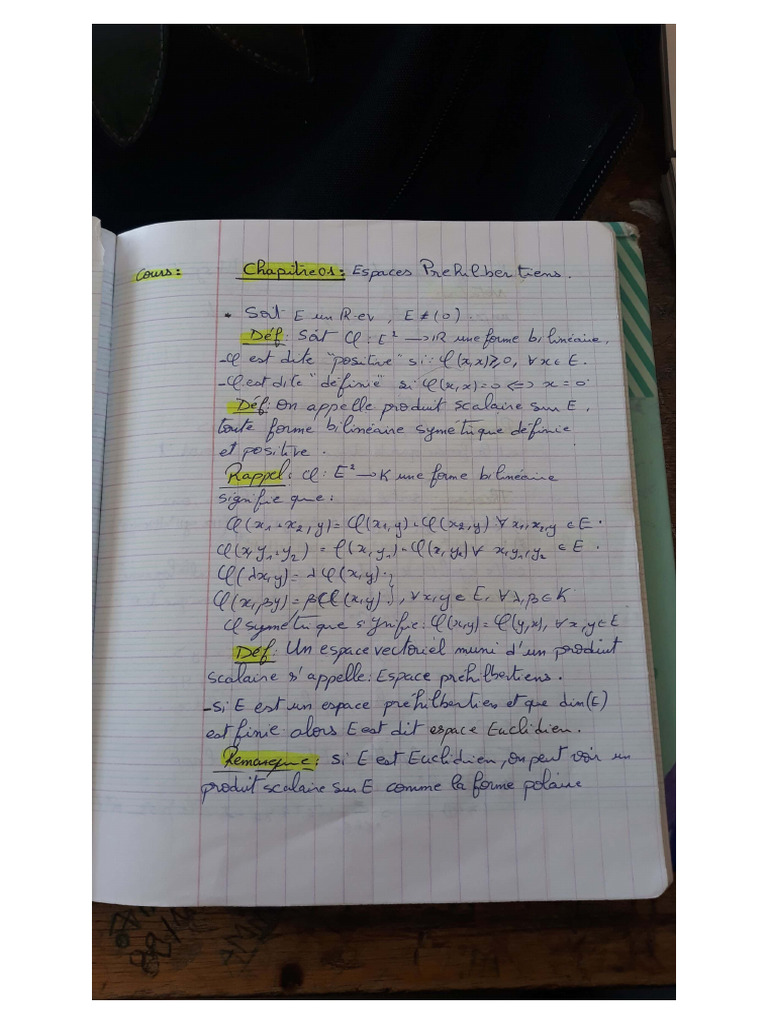 Cours: Chapitre 01: Espaces Préhilbertiens.
• Soit E un R-ev, E ≠ (0).
Déf: Soit φ: E² → R une forme bilinéaire,
- φ est dite "positive" si: φ(x,x) ≥ 0, ∀x ∈ E.
- φ est dite "définie" si φ(x,x)=0 <=> x=0
Déf: On appelle produit scalaire sur E,
toute forme bilinéaire symétrique définie
et positive.
Rappel: φ: E² → K une forme bilinéaire
signifie que:
φ(x₁+x₂,y)=φ(x₁,y)+φ(x₂,y) ∀ x₁,x₂,y ∈ E.
φ(x,y₁+y₂) = φ(x,y₁)+φ(x,y₂) ∀ x,y₁,y₂ ∈ E.
φ(λx,y)=λφ(x,y).
φ(x,βy)=βφ(x,y), ∀x,y ∈ E, ∀λ,β ∈ K
φ symétrique signifie: φ(x,y)=φ(y,x), ∀x,y ∈ E
Déf: Un espace vectoriel muni d'un produit
scalaire s'appelle: Espace préhilbertiens.
- Si E est un espace préhilbertien et que dim(E)
est finie alors E est dit espace Euclidien.
Remarque: Si E est Euclidien, on peut voir un
produit scalaire sur E comme la forme polaire